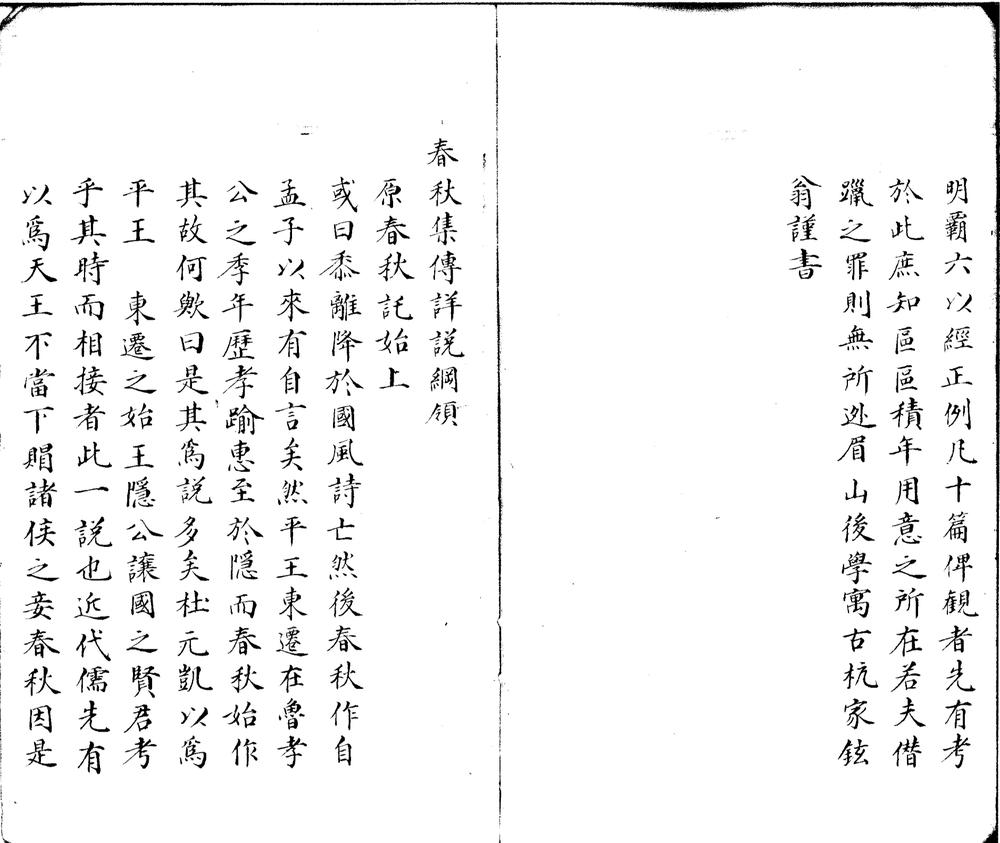 明霸六以經正例凡十篇俾観者先有考
於此庶知區區積年用意之所在若夫僣
躐之罪則無所逃眉山後學寓古杭家鉉
翁謹書
春秋集傳詳説綱領
原春秋託始上
或曰黍離降於國風詩亡然後春秋作自
孟子以來有自言矣然平王東遷在魯孝
公之季年歷孝踰惠至於隱而春秋始作
其故何歟曰是其爲説多矣杜元凱以爲
平王 東遷之始王隱公讓國之賢君考
乎其時而相接者此一説也近代儒先有
以爲天王不當下賵諸侯之妾春秋因是